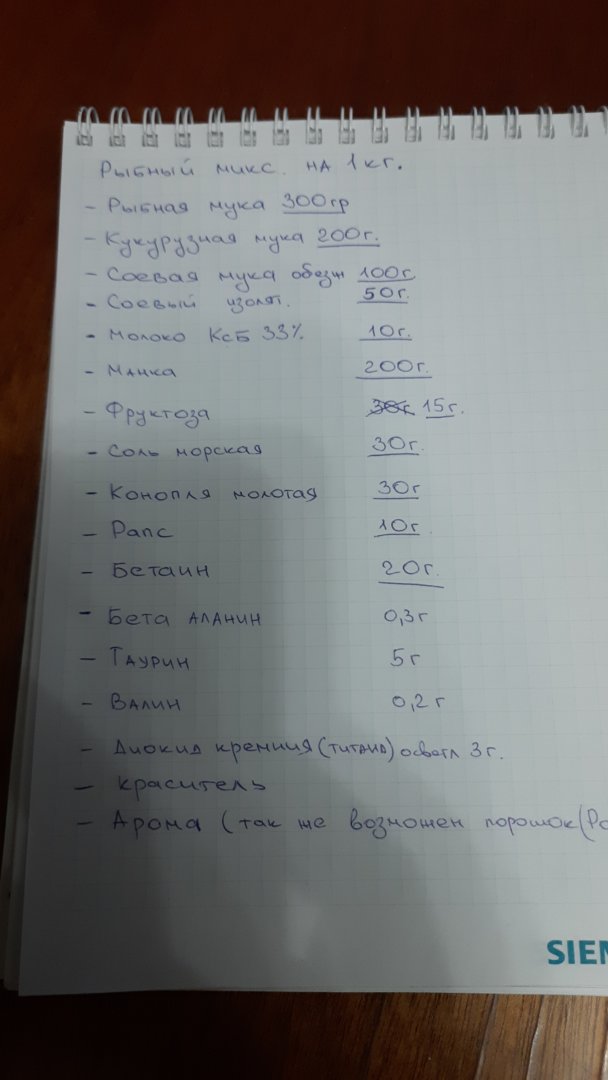 Рыбный микс на 1кг.
- Рыбная мука 300гр
- Кукурузная мука 200г.
- Соевая мука обезж 100г.
- Соевый изолят. 50г.
- Молоко КСБ 33% 10г.
- Манка 200г.
- Фруктоза 30г 15г.
- Соль морская 30г.
- Конопля молотая 30г
- Рапс 10г.
- Бетаин 20г.
- Бета аланин 0,3г
- Таурин 5г
- Валин 0,2г
- Диокид кремния (титана) осветл 3г.
- Краситель
- Арома (так же возможен порошок (Ро
SIEM